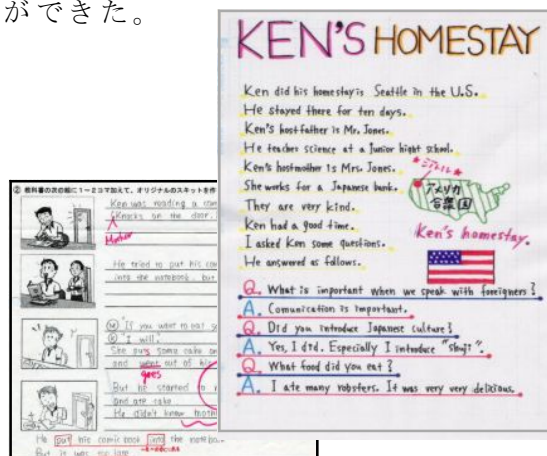 ができた。
KEN'S HOMESTAY
Ken did his homestay is Seattle in the U.S.
He stayed there for ten days.
Ken's host father is Mr. Jones.
He teacher science at a Junior hight school.
Ken's hostmother is Mrs. Jones.
She works for a Japanese bank.
They are very kind.
Ken had a good time.
I asked Ken some questions.
He answered as follows.
シアトル
アメリカ
合衆国
Ken's homestay.
Q. What is important when we speak with foreigners?
A. Comunication is important.
Q. Did you introduce Japanese culture?
A. Yes, I did. Especially I introduce "shuji".
Q. What food did you eat?
A. I ate many robsters. It was very very delicious.
② 教科書の次の絵に1~2コマ加えて、オリジナルのスキットを作
Ken was reading a com
(Knocks on the door.
Mother
He tried to put his co
into the notebook. but
Ⓜ "If you want to eat
Ⓚ "I will."
She puts some cake on
and went out of hi
goes
But he started to r
and ate cake.
He didn't know
He put his comic book into the noteboo
But it was too late